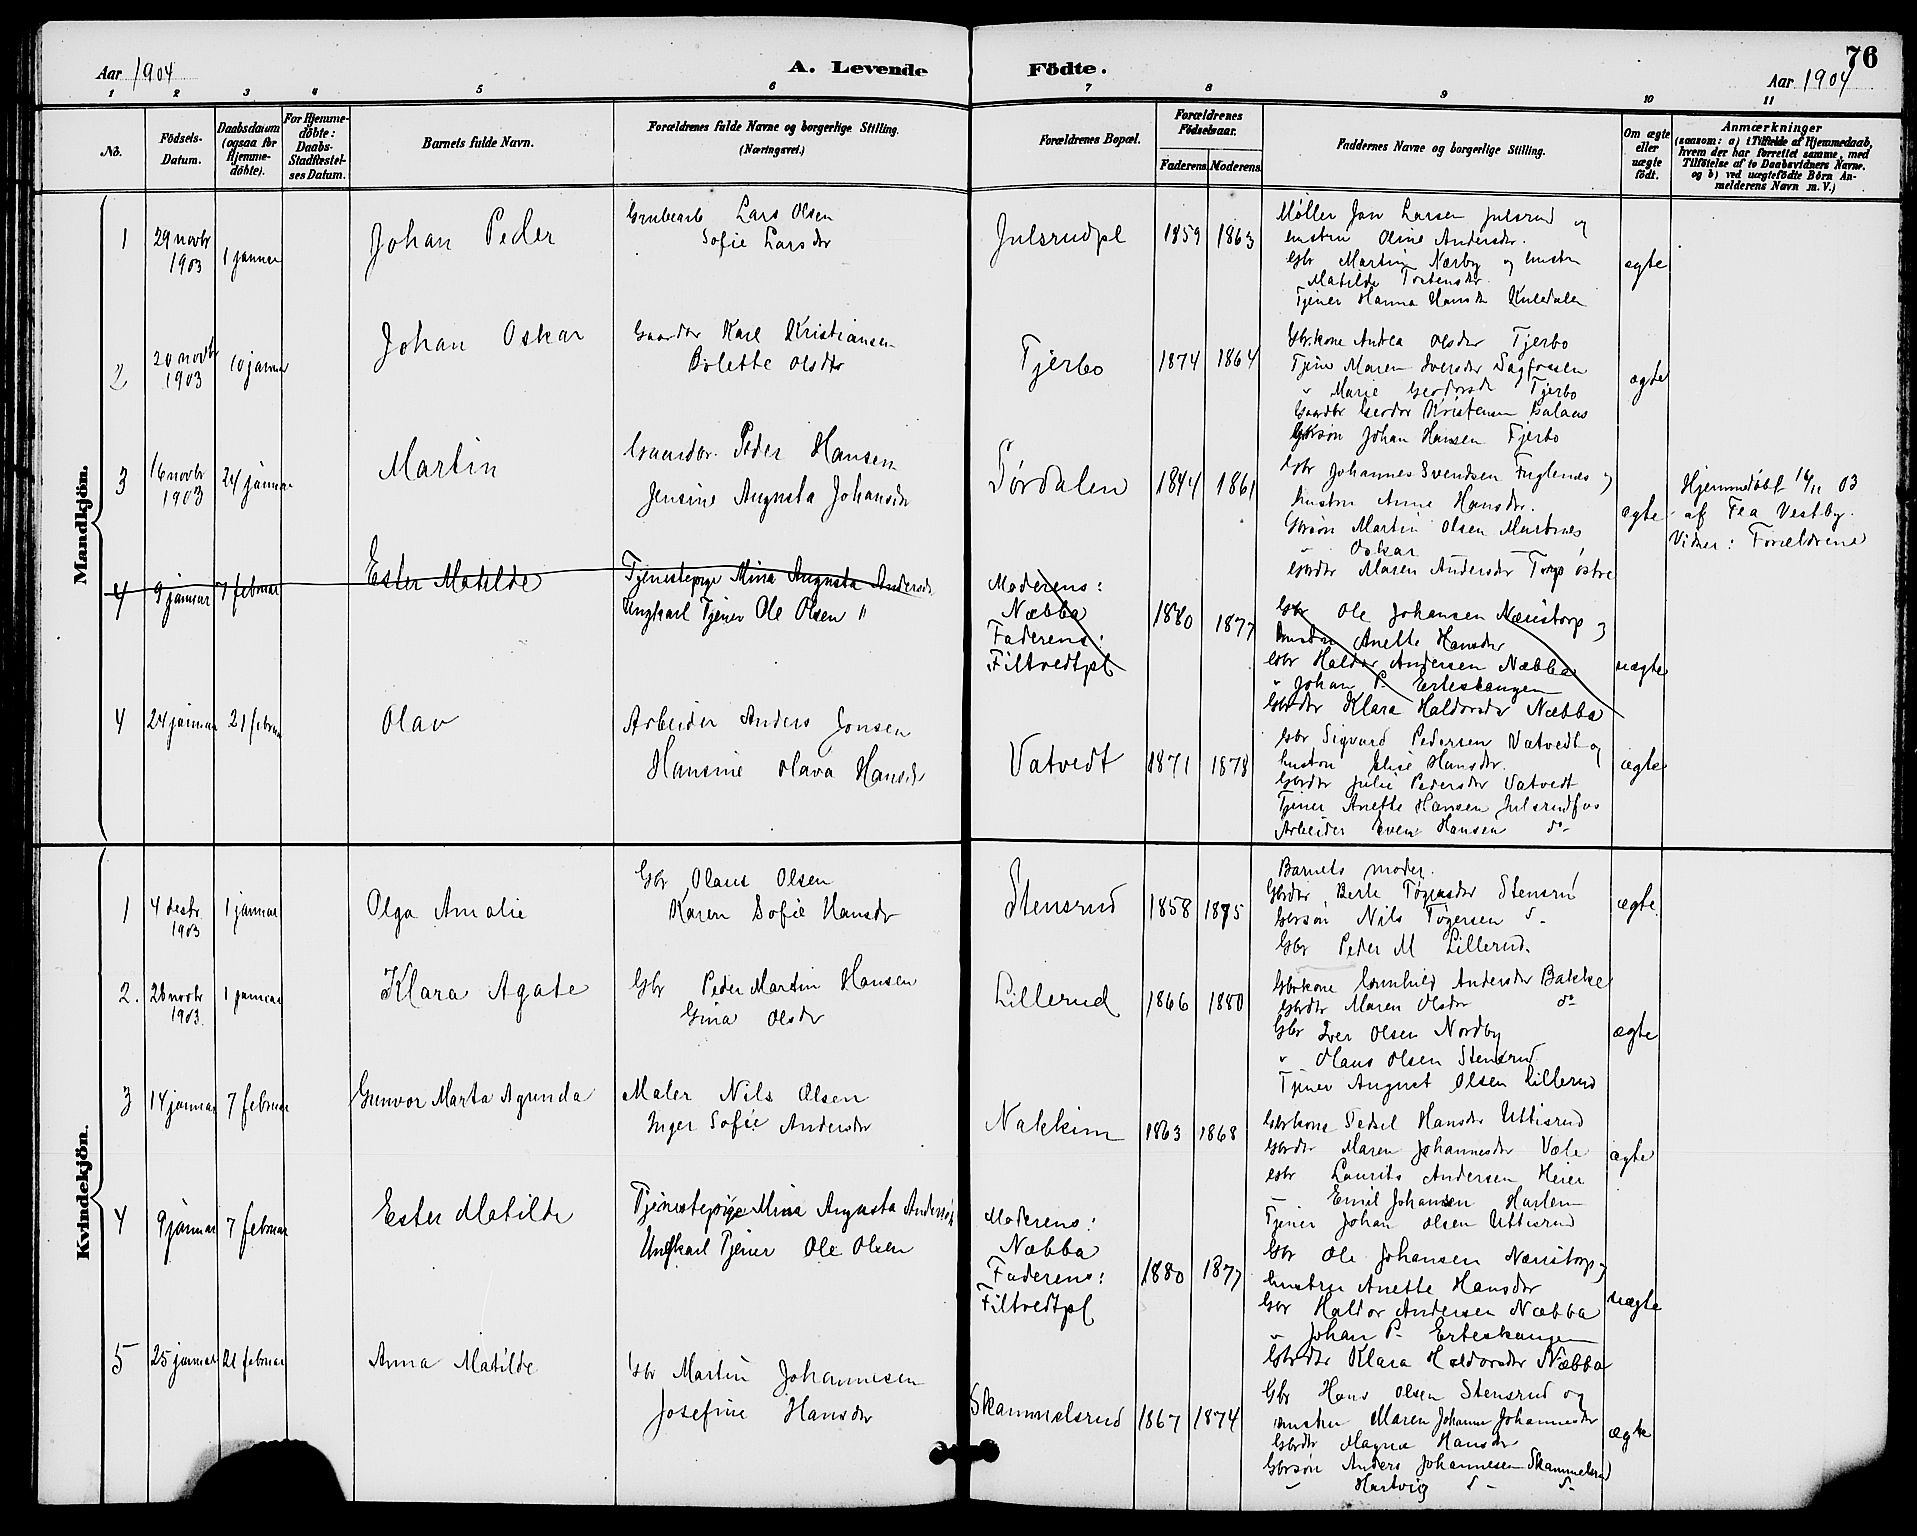 76
Aar 1904
A. Levende Födte.
Aar 1904
1 2 3 4 5 6 7 8 9 10 11
No.
Födsels-Datum.
Daabsdatum (ogsaa for Hjemme-döbte).
For Hjemme-döbte: Daabs-Stadfæstel-ses Datum.
Barnets fulde Navn.
Forældrenes fulde Navne og borgerlige Stilling. (Næringsvei.)
Forældrenes Bopæl.
Forældrenes Födselsaar.
Faderens. Moderens.
Faddernes Navne og borgerlige Stilling.
Om ægte eller uægte födt.
Anmærkninger
(saasom: a) i Tilfælde af Hjemmedaab, hvem der har forrettet samme, med Tilföielse af to Daabsvidners Navne. og b) ved uægtefödte Börn An-melderens Navn m. V.)
Mandkjön.
1
29 novbr 1903
1 januar
Johan Peder
Grubearb Lars Olsen
Sofie Larsdr
Julsrudpl
1859 1863
Møller Jan Larsen Julsrud og
hustru Oline Andersdr.
Gbr Martin Nærby og hustru
Matilde Torstensdr.
Tjener Hanna Hansdr
ægte
2
20 novbr 1903
10 januar
Johan Oskar
Gaardbr Karl Kristiansen
Bolette Olsdtr
Tjerbo
1874 1864
Gbrkone Andrea Olsdr Tjerbo
Tjene Maren Iversdr Sagfossen
" Marie Tjerbo
Gaardbr Kristensen
Gbrsøn Johan Hansen Tjerbo
ægte
3
16 novbr 1903
24 januar
Martin
Gaardbr. Peder Hansen
Jensine Augusta Johansdr
Sørdalen
1844 1861
Gbr Johannes Svendsen Fuglenes og
hustru Anne Hansdr.
Gbrsøn Martin Olsen
" Oskar
Gbrdtr Maren Andersdr Torp østre
ægte
Hjemmedöbt 16/11 03
af Fea Vestby.
Vidner: Forældrene
4
9 januar
7 februar
Ester Matilde
Tjenestepige Mina Augusta Andersdr
Ungkarl Tjener Ole Olsen "
Moderens:
Næbba
Faderens:
Filtvedtpl
1880 1877
Gbr Ole Johansen Næristorp og
hustru Anette Hansdr
Gbr Haldor Andersen Næbba
" Johan P. Erteskangen
Gbrdtr Klara Haldorsdr Næbba
uægte
4
24 januar
21 februar
Olav
Arbeider Anders Jonsen
Hansine Olava Hansdr
Vatvedt
1871 1878
Gbr Sigvard Pedersen Vatvedt og
hustru Elise Hansdr.
Gbrdtr Julie Pedersdr Vatvedt
Tjener Anette Hansen Julsrudfos
Arbeider Even Hansen do
ægte
Kvindekjön.
1
4 desbr 1903
1 januar
Olga Amalie
Gbr Olaus Olsen
Karen Sofie Hansdr
Stensrud
1858 1875
Barnets moder.
Gbrdtr Berte Tøgersdr Stensrud
Gbrsøn Nils Tøgersen do
Gbr Peder M Lillerud.
ægte
2.
28 novbr 1903.
1 januar
Klara Agate
Gbr Peder Martin Hansen
Gina Olsdr
Lillerud
1866 1880
Gbrkone Gunhild Andersdr Bakke
Gbrdtr Maren Olsdr do
Gbr Iver Olsen Nordby
" Olaus Olsen Stensrud
Tjener August Olsen Lillerud
ægte
3
14 januar
7 februar
Gunvor Marta Agunda
Maler Nils Olsen
Inger Sofie Andersdr
Nakkim
1863 1868
Gbrkone Sedsel Hansdr Uttisrud
Gbrdtr Maren Johannesdr Vele
Gbr Laurits Andersen Heier
" Emil Johansen Harlem
Tjener Johan Olsen Uttisrud
ægte
4
9 januar
7 februar
Ester Matilde
Tjenestepige Mina Augusta Andersdr
Ungkarl Tjener Ole Olsen
Moderens:
Næbba
Faderens:
Filtvedtpl
1880 1877
Gbr Ole Johansen Næristorp og
hustru Anette Hansdr
Gbr Haldor Andersen Næbba
" Johan P. Erteskangen
Gbrdtr Klara Haldorsdr Næbba
uægte
5
25 januar
21 februar
Anna Matilde
Gbr Martin Johannesen
Josefine Hansdr
Skammelsrud
1867 1874
Gbr Hans Olsen Stensrud og
hustru Maren Johanne Johannesdr
Gbrdtr Magna Hansdr
Gbrsøn Anders Johannesen Skammelsrud
" Hartvig do do
ægte